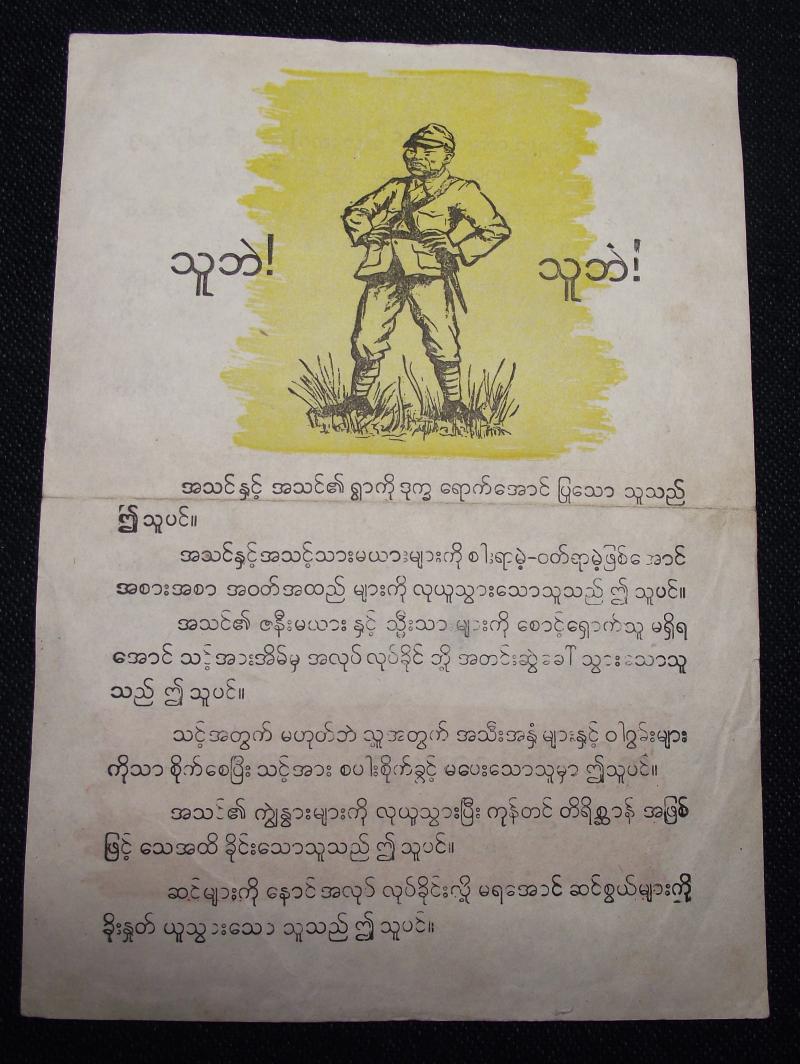 သူဘဲ!
သူဘဲ!
အသင်နှင့် အသင်၏ ရွာကို ဒုက္ခ ရောက်အောင် ပြုသော သူသည်
ဤ သူပင်။
အသင်နှင့်အသင့်သားမယားများကို စါးရာမဲ့-ဝတ်ရာမဲ့ဖြစ်အောင်
အစားအစာ အဝတ်အထည် များကို လုယူသွားသောသူသည် ဤ သူပင်။
အသင်၏ ဇနီးမယား နှင့် သ္မီးသား များကို စောင့်ရှောက်သူ မရှိရ
အောင် သင့်အားအိမ်မှ အလုပ် လုပ်ခိုင် ဘို့ အတင်းဆွဲခေါ် သွားသောသူ
သည် ဤ သူပင်။
သင့်အတွက် မဟုတ်ဘဲ သူ့အတွက် အသီးအနှံ များနှင့် ဝါဂွမ်းများ
ကိုသာ စိုက်စေပြီး သင့်အား စပါးစိုက်ခွင့် မပေးသောသူမှာ ဤသူပင်။
အသင်၏ ကျွဲနွားများကို လုယူသွားပြီး ကုန်တင် တိရိစ္ဆာန် အဖြစ်
ဖြင့် သေအထိ ခိုင်းသောသူသည် ဤ သူပင်။
ဆင်များကို နောင် အလုပ် လုပ်ခိုင်းလို့ မရအောင် ဆင်စွယ်များကို
ခိုးနှုတ် ယူသွားသော သူသည် ဤ သူပင်။